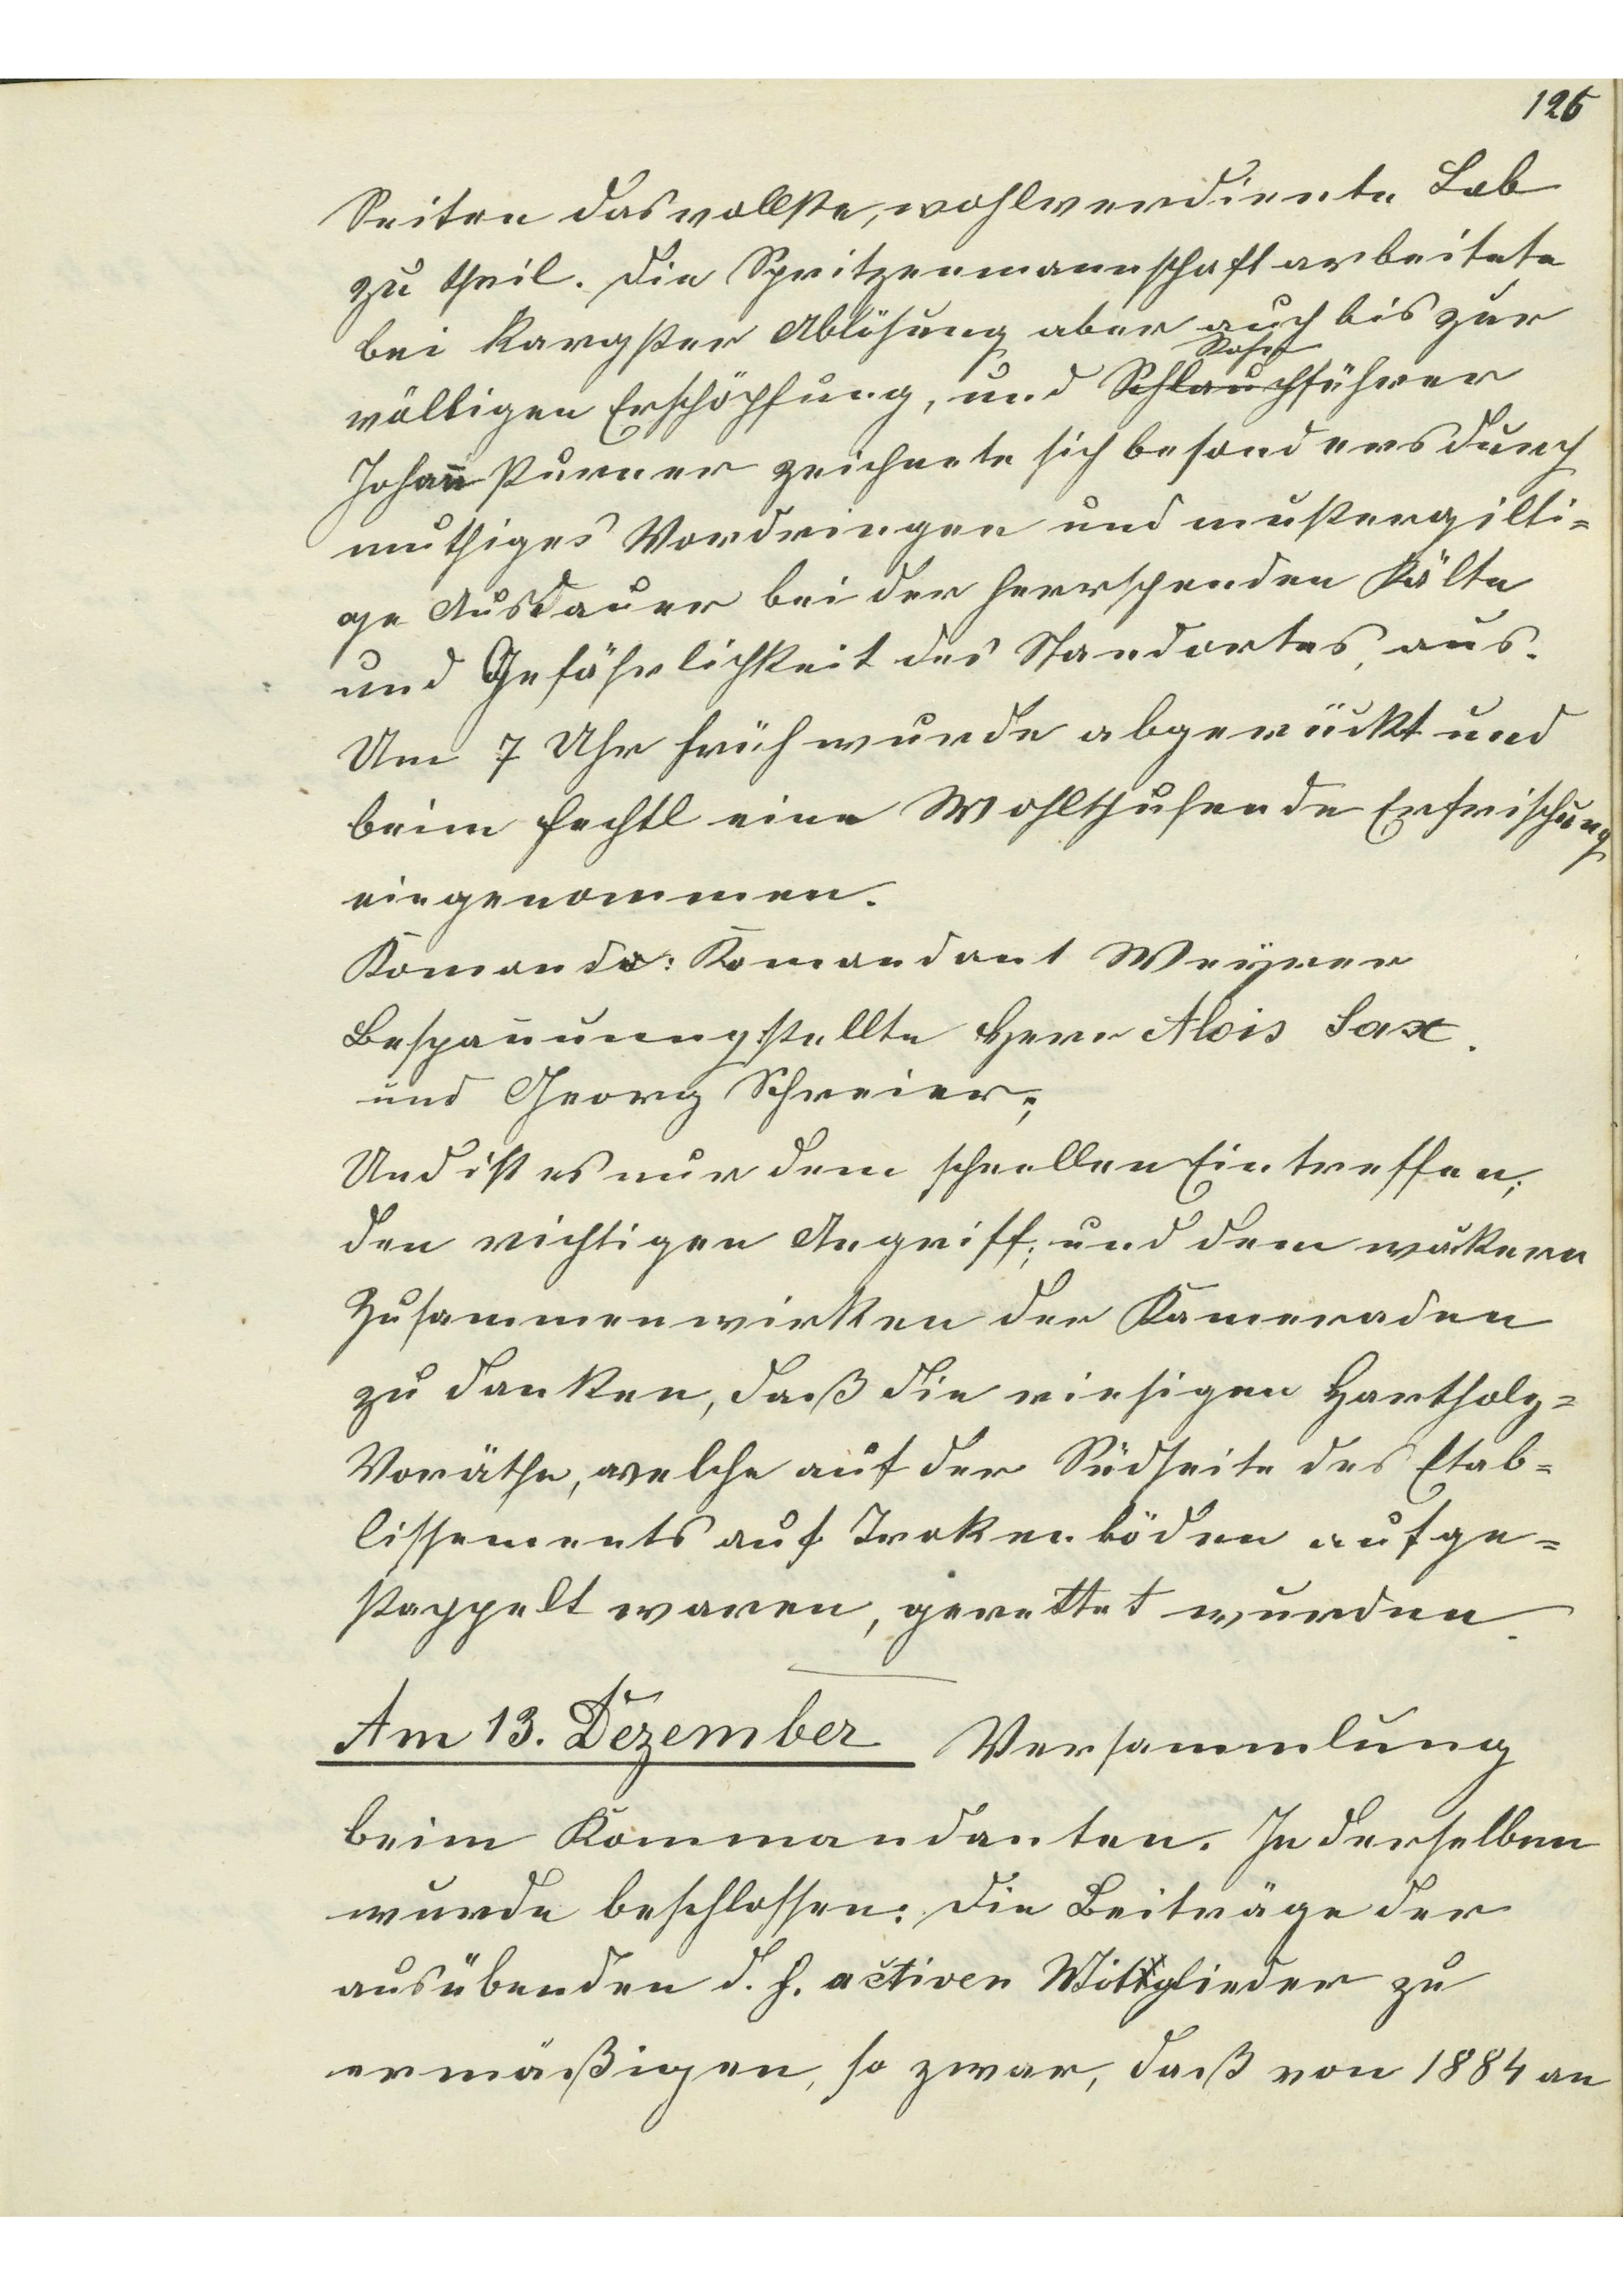 125
Seiten das vollste, wohlverdiente Lob
zu theil. Die Spritzenmannschaft arbeitete
bei kargster Ablösung aber auch bis zur
Rohr
völligen Erschöpfung, und Schlauchführer
Johann Purner zeichnete sich besonders durch
muthiges Vordringen und mustergilti=
ge Ausdauer bei der herrschenden Kälte
und Gefährlichkeit des Standortes, aus.
Um 7 Uhr früh wurde abgerückt und
beim Fechtl eine Wohlthuhende Erfrischung
eingenommen.
Komando: Komandant Weyrer
Bespannung stellte Herr Alois Sax.
und Georg Schreier;
Und ist es nur dem schnellen Eintreffen;
den richtigen Angriff; und dem wäkern
Zusammenwirken der Kameraden
zu danken, daß die riesigen Hartholz=
Voräthe, welche auf der Südseite des Etab=
lissements auf Trokenböden aufge=
stappelt waren, gerettet wurden.
Am 13. Dezember Versammlung
beim Kommandanten. In derselben
wurde beschlossen: die Beiträge der
ausübenden d. h. activen Mitglieder zu
ermäßigen, so zwar, daß von 1884 an